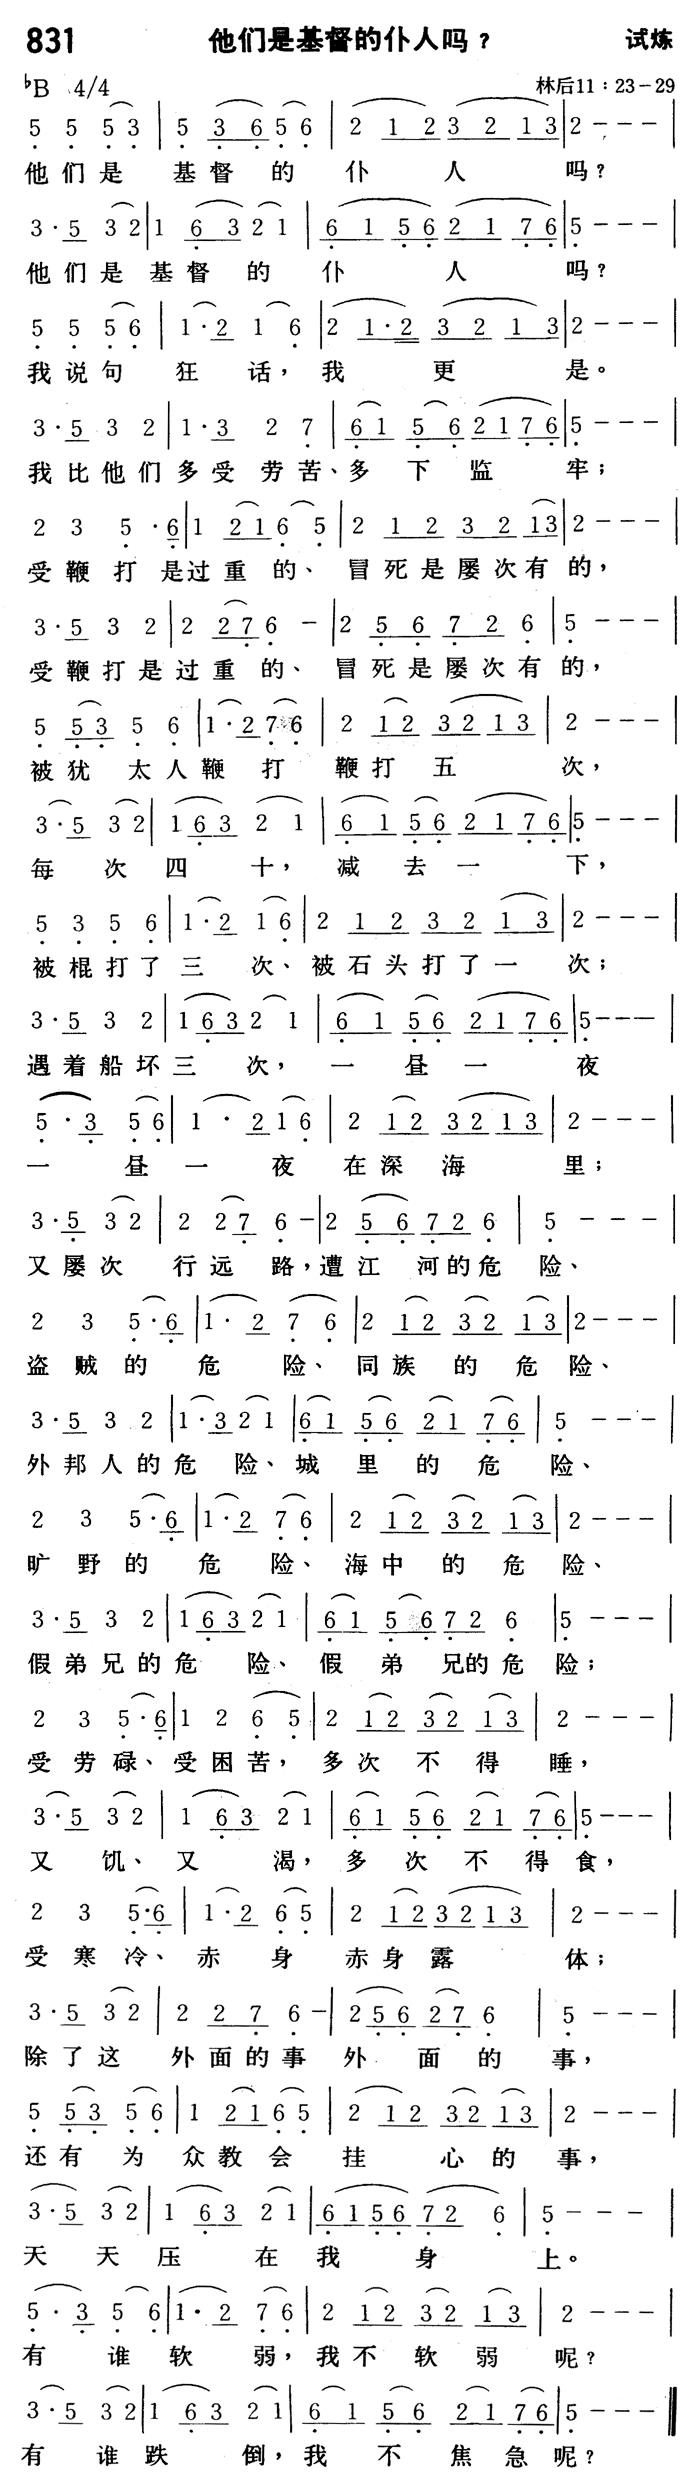 831 他们是基督的仆人吗? 试炼
♭B 4/4 林后11:23-29
5 5 5 3 | 5 3 6 5 6 | 2 1 2 3 2 1 3 | 2 - - - |
他们是 基督的 仆 人 吗?
3·5 3 2 | 1 6 3 2 1 | 6 1 5 6 2 1 7 6 | 5 - - - |
他们是基督的 仆 人 吗?
5 5 5 6 | 1·2 1 6 | 2 1·2 3 2 1 3 | 2 - - - |
我说句 狂 话,我 更 是。
3·5 3 2 | 1·3 2 7 | 6 1 5 6 2 1 7 6 | 5 - - - |
我比他们多受劳苦、多下监 牢;
2 3 5·6 | 1 2 1 6 5 | 2 1 2 3 2 1 3 | 2 - - - |
受鞭打是过重的、冒死是屡次有的,
3·5 3 2 | 2 2 7 6 - | 2 5 6 7 2 6 | 5 - - - |
受鞭打是过重的、冒死是屡次有的,
5 5 3 5 6 | 1·2 7 6 | 2 1 2 3 2 1 3 | 2 - - - |
被犹太人鞭打 鞭打五 次,
3·5 3 2 | 1 6 3 2 1 | 6 1 5 6 2 1 7 6 | 5 - - - |
每次四 十,减去一 下,
5 3 5 6 | 1·2 1 6 | 2 1 2 3 2 1 3 | 2 - - - |
被棍打了三 次、被石头打了一 次;
3·5 3 2 | 1 6 3 2 1 | 6 1 5 6 2 1 7 6 | 5 - - - |
遇着船坏三 次,一昼一 夜
5·3 5 6 | 1·2 1 6 | 2 1 2 3 2 1 3 | 2 - - - |
一昼一 夜在深海 里;
3·5 3 2 | 2 2 7 6 - | 2 5 6 7 2 6 | 5 - - - |
又屡次 行远路,遭江河的危险、
2 3 5·6 | 1·2 7 6 | 2 1 2 3 2 1 3 | 2 - - - |
盗贼的危 险、同族的危险、
3·5 3 2 | 1·3 2 1 | 6 1 5 6 2 1 7 6 | 5 - - - |
外邦人的危险、城里的危险、
2 3 5·6 | 1·2 7 6 | 2 1 2 3 2 1 3 | 2 - - - |
旷野的危险、海中的危险、
3·5 3 2 | 1 6 3 2 1 | 6 1 5 6 7 2 6 | 5 - - - |
假弟兄的危 险、假弟兄的危险;
2 3 5·6 | 1 2 6 5 | 2 1 2 3 2 1 3 | 2 - - - |
受劳碌、受困苦,多次不得睡,
3·5 3 2 | 1 6 3 2 1 | 6 1 5 6 2 1 7 6 | 5 - - - |
又饥、又 渴,多次不得食,
2 3 5·6 | 1·2 6 5 | 2 1 2 3 2 1 3 | 2 - - - |
受寒冷、赤身 赤身露 体;
3·5 3 2 | 2 2 7 6 - | 2 5 6 2 7 6 | 5 - - - |
除了这 外面的事外面的事,
5 5 3 5 6 | 1 2 1 6 5 | 2 1 2 3 2 1 3 | 2 - - - |
还有为 众教会 挂 心的事,
3·5 3 2 | 1 6 3 2 1 | 6 1 5 6 7 2 6 | 5 - - - |
天天压 在我 身 上。
5·3 5 6 | 1·2 7 6 | 2 1 2 3 2 1 3 | 2 - - - |
有谁软 弱,我不软弱呢?
3·5 3 2 | 1 6 3 2 1 | 6 1 5 6 2 1 7 6 | 5 - - - ‖
有谁跌 倒,我不焦急呢?